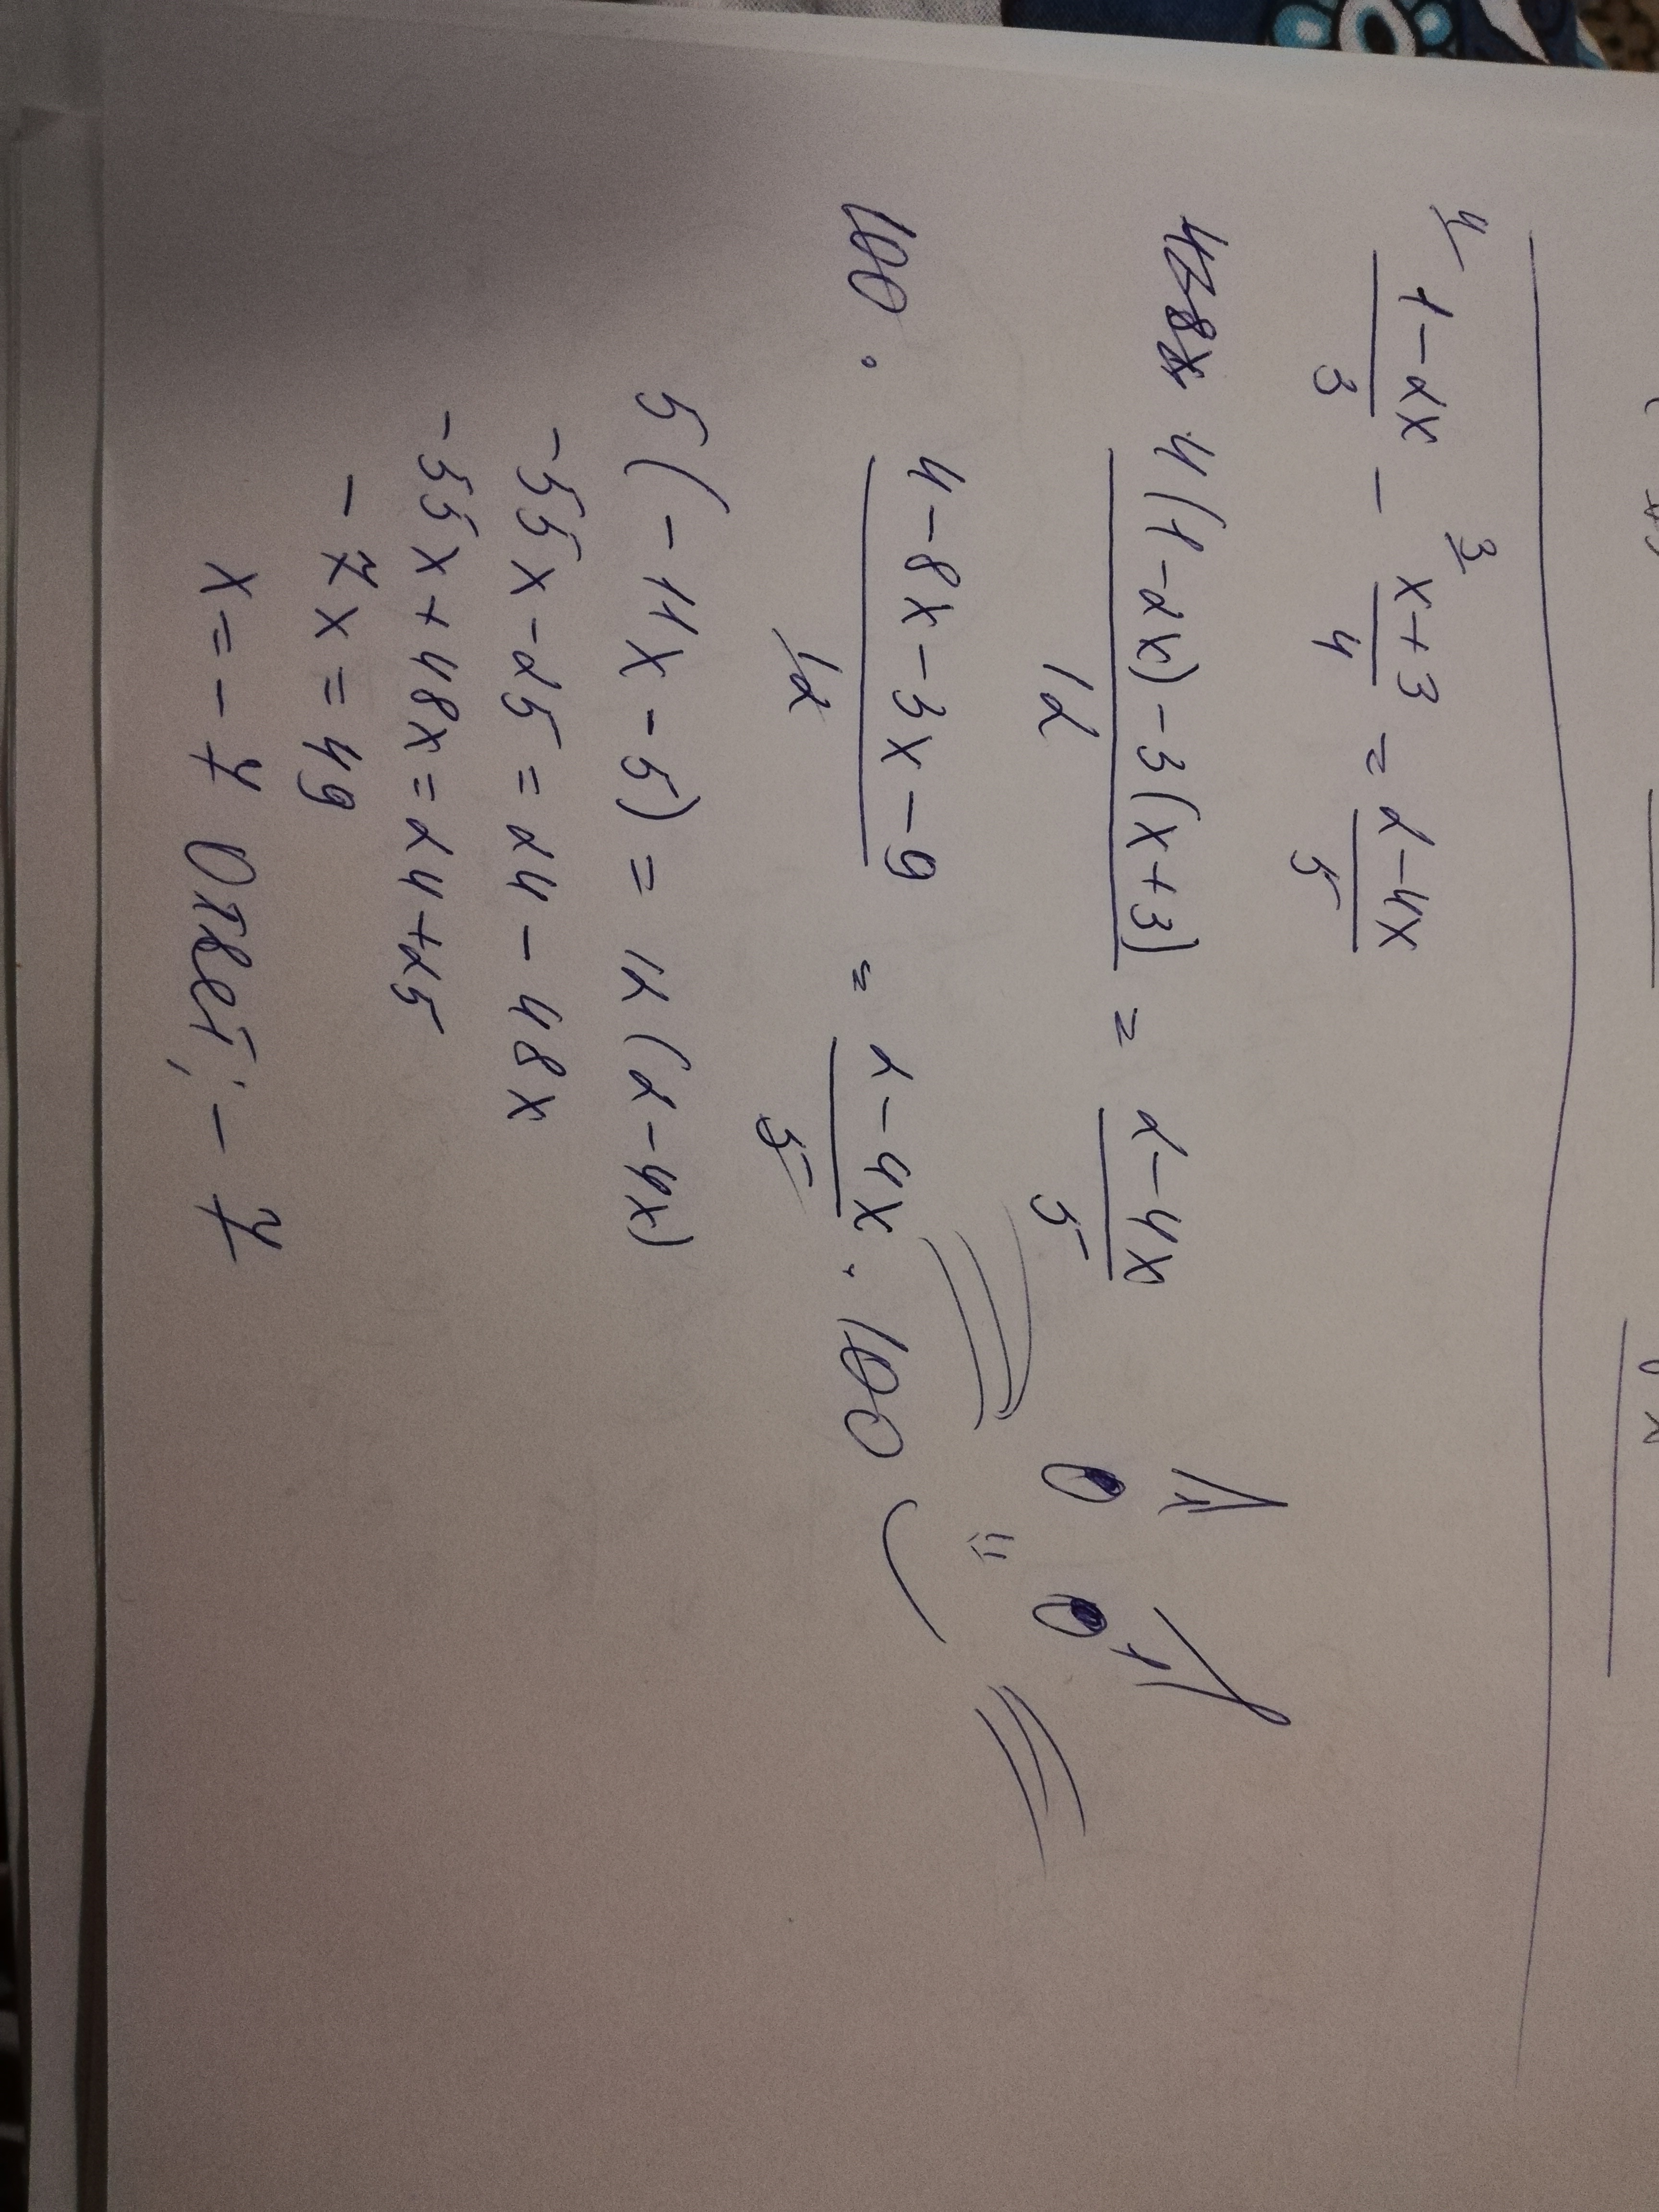 4 1-2x/3 - 3 x+3/4 = 2-4x/5
4-8x 4(1-2x)-3(x+3)/12 = 2-4x/5
100 · 4-8x-3x-9/12 = 2-4x/5 · 100
5(-11x-5) = 12(2-4x)
-55x-25 = 24-48x
-55x+48x = 24+25
-7x = 49
x = -7 Ответ: -7